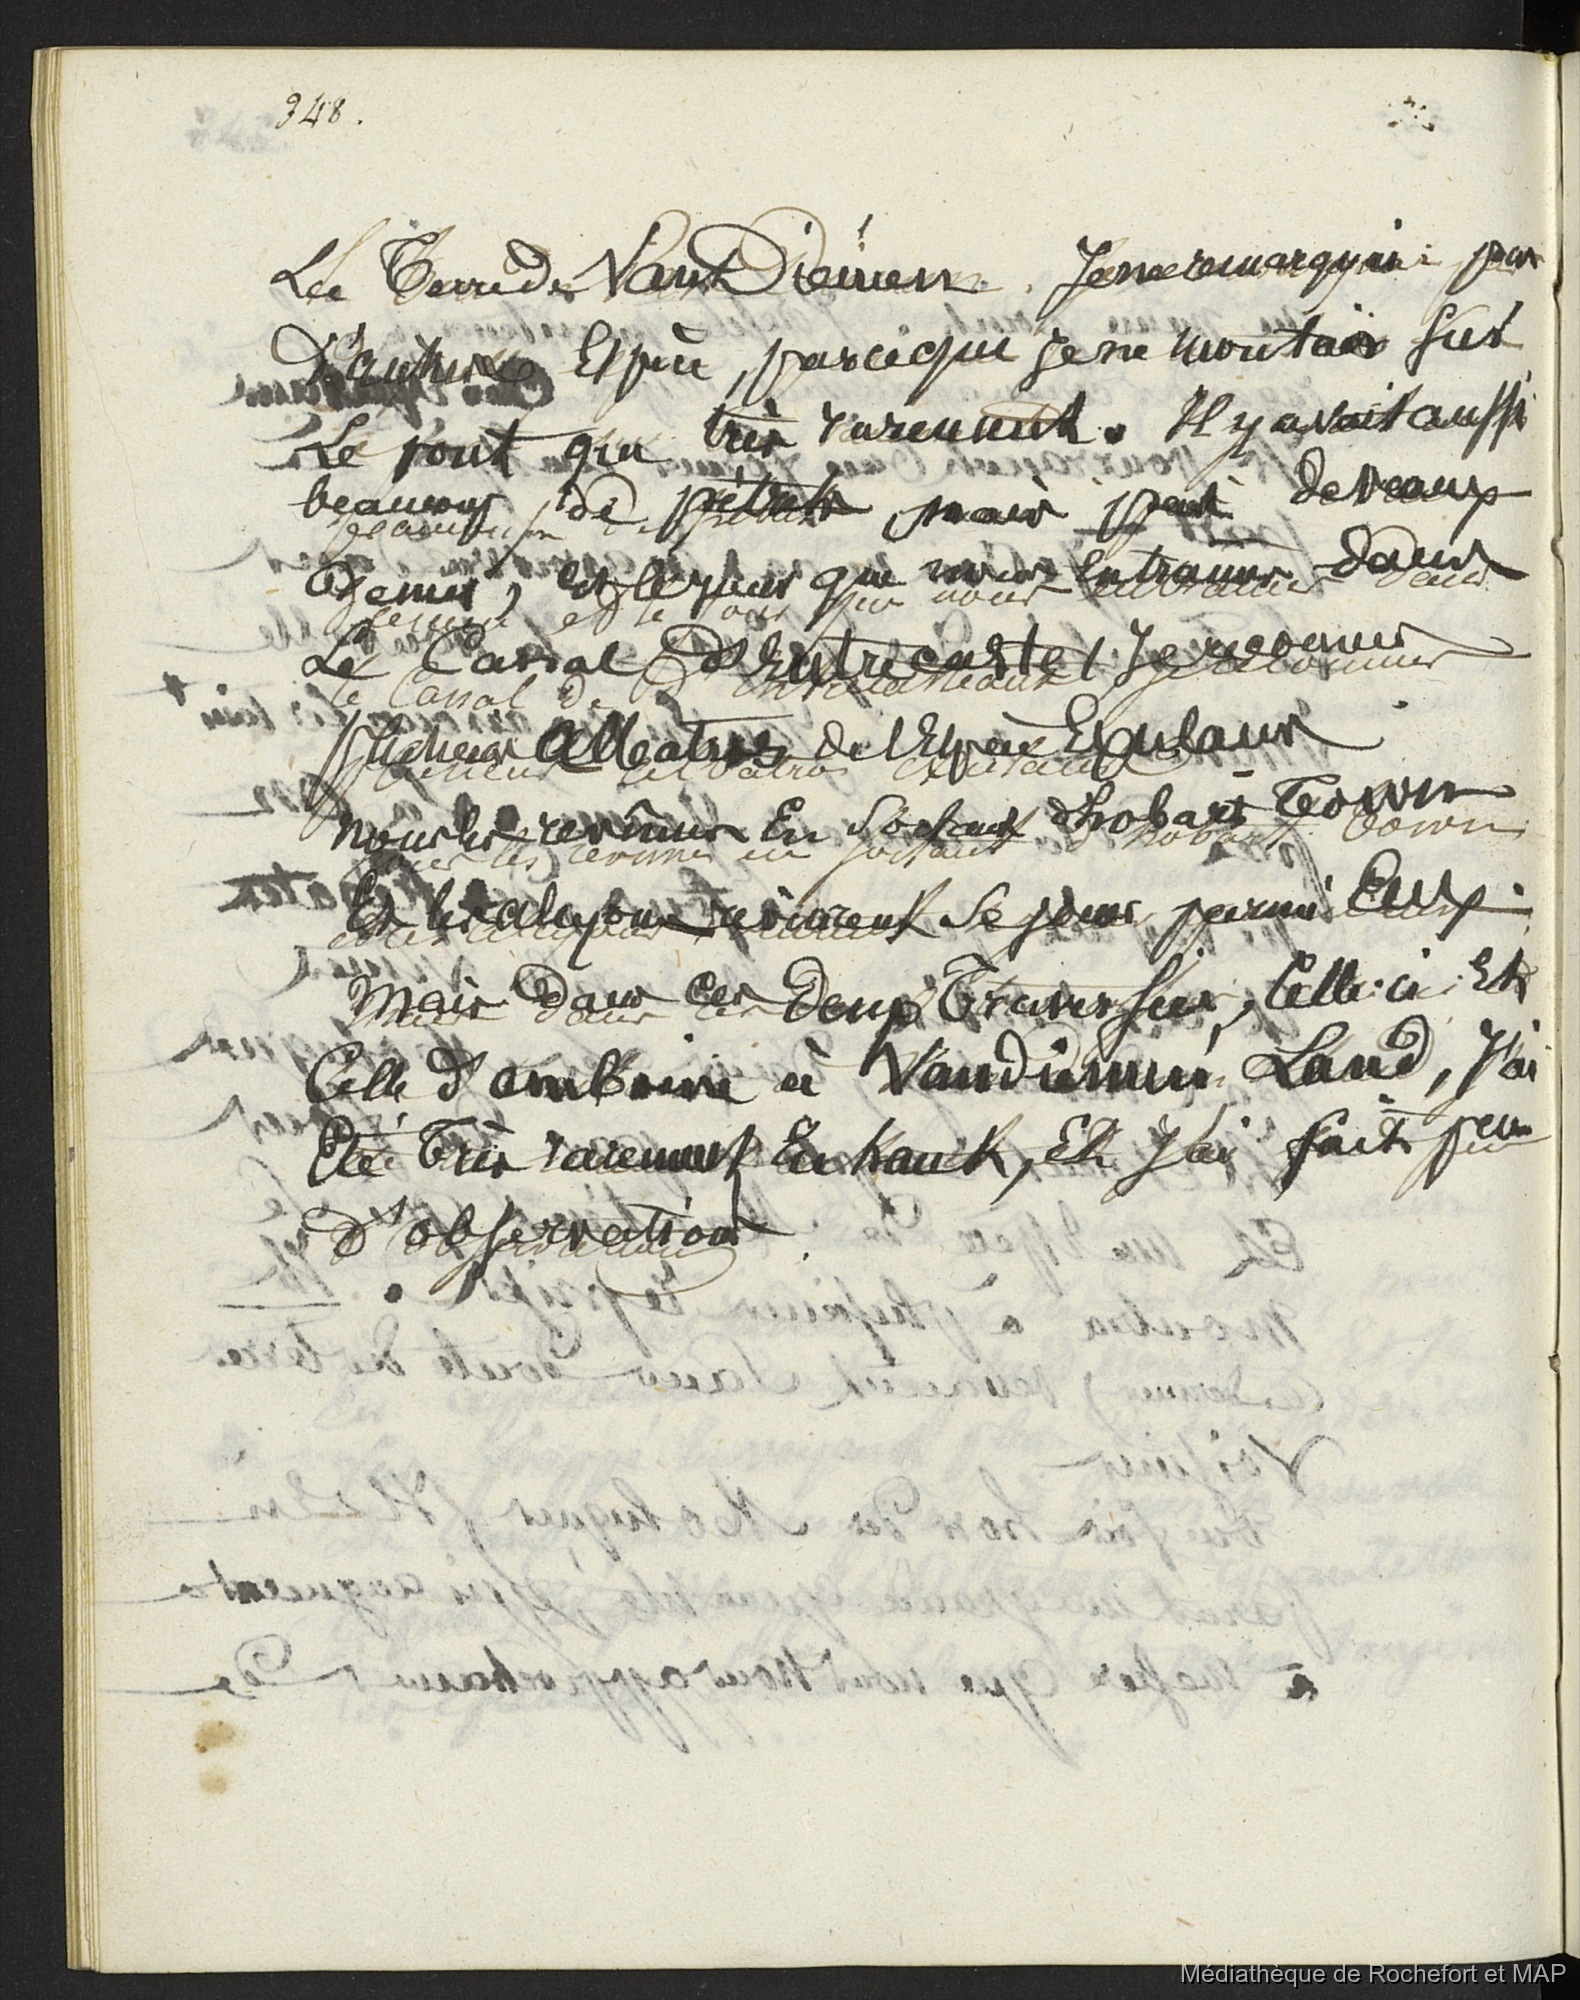 348.
La Terre de Van Diémen. Je ne remarquai pas
D'autre Espèce, parceque je ne montais sur
Le pont que très rarement. Il y avait aussi
beaucoup de pétrels, mais peu de veaux
Et le jour que nous entrames dans
Le Canal D'Entrecasteaux Je reconnus
plusieurs Albatros de l'Espèce Exulans
nous les revimes En sortant d'hobart Town
Et les alcyons revinrent se jouer parmi Eux.
Mais dans ces Deux Traversées, Celle-ci Et
Celle d'amboine à Vandiemen Land, J'ai
Été Très rarement En haut, Et J'ai fait peu
d'observations.
Médiathèque de Rochefort et MAP